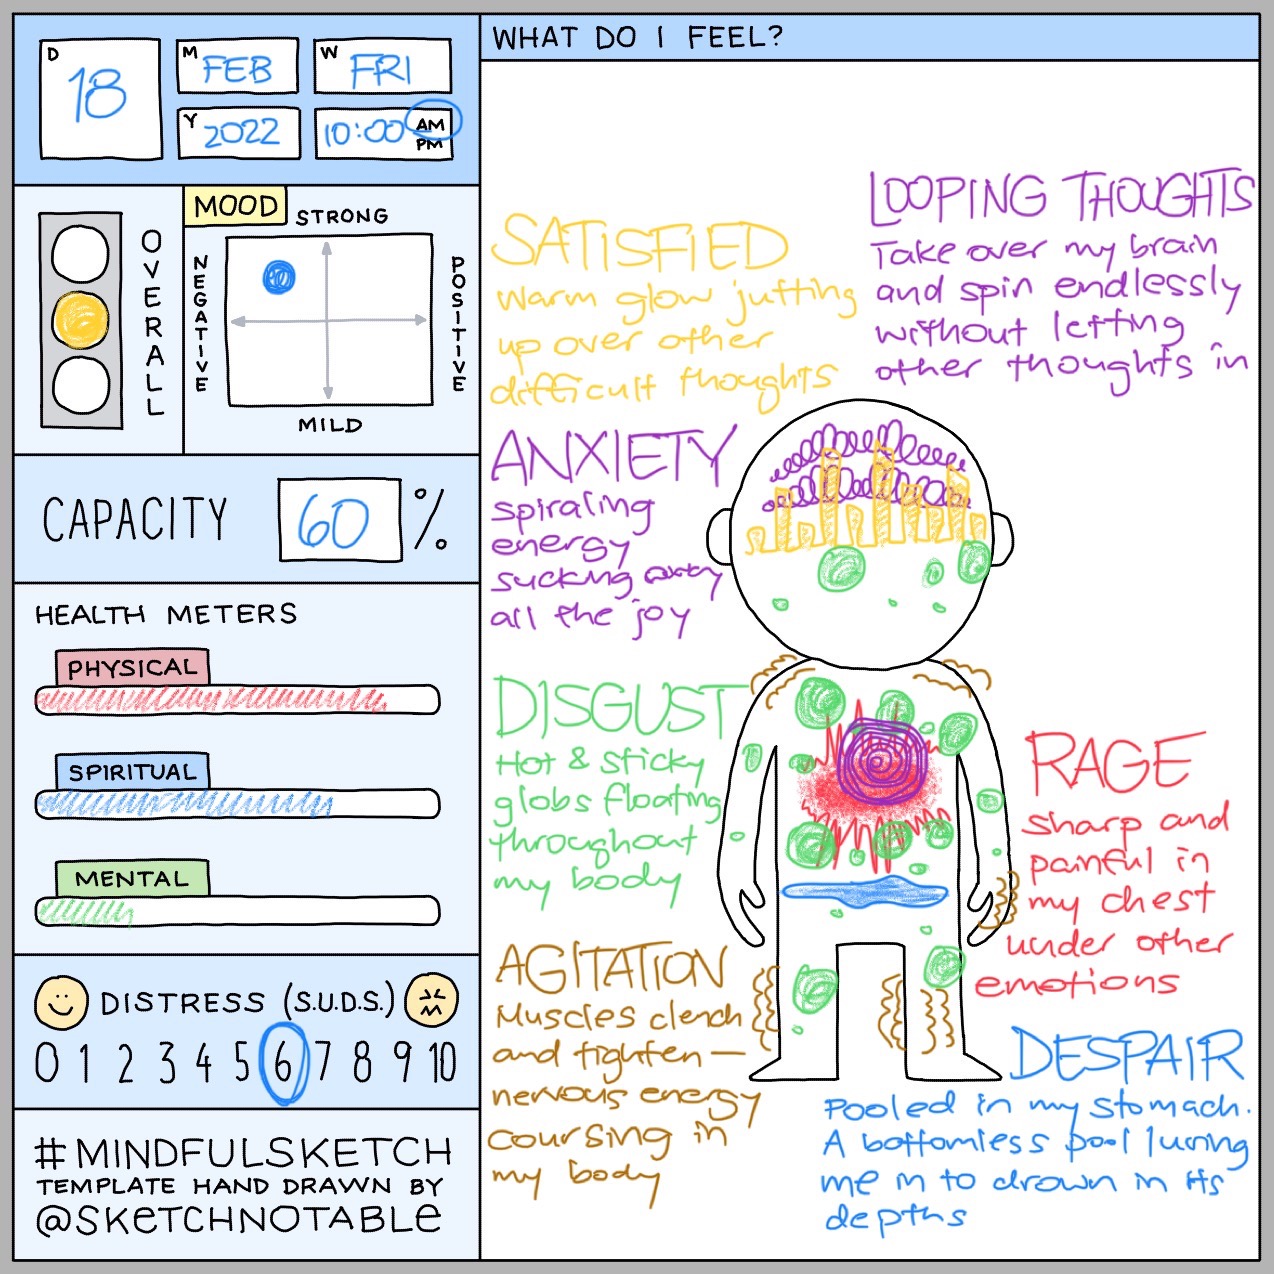 D
18
M
FEB
W
FRI
Y
2022
10:00 AM
PM
OVERALL
MOOD
STRONG
NEGATIVE
POSITIVE
MILD
CAPACITY 60 %
HEALTH METERS
PHYSICAL
SPIRITUAL
MENTAL
DISTRESS (S.U.D.S.)
0 1 2 3 4 5 6 7 8 9 10
#MINDFULSKETCH
TEMPLATE HAND DRAWN BY
@SKETCHNOTABLE
WHAT DO I FEEL?
SATISFIED
Warm glow jutting
up over other
difficult thoughts
LOOPING THOUGHTS
Take over my brain
and spin endlessly
without letting
other thoughts in
ANXIETY
spiraling
energy
sucking away
all the joy
DISGUST
Hot & sticky
globs floating
throughout
my body
RAGE
sharp and
painful in
my chest
under other
emotions
AGITATION
Muscles clench
and tighten —
nervous energy
coursing in
my body
DESPAIR
Pooled in my stomach.
A bottomless pool luring
me in to drown in its
depths